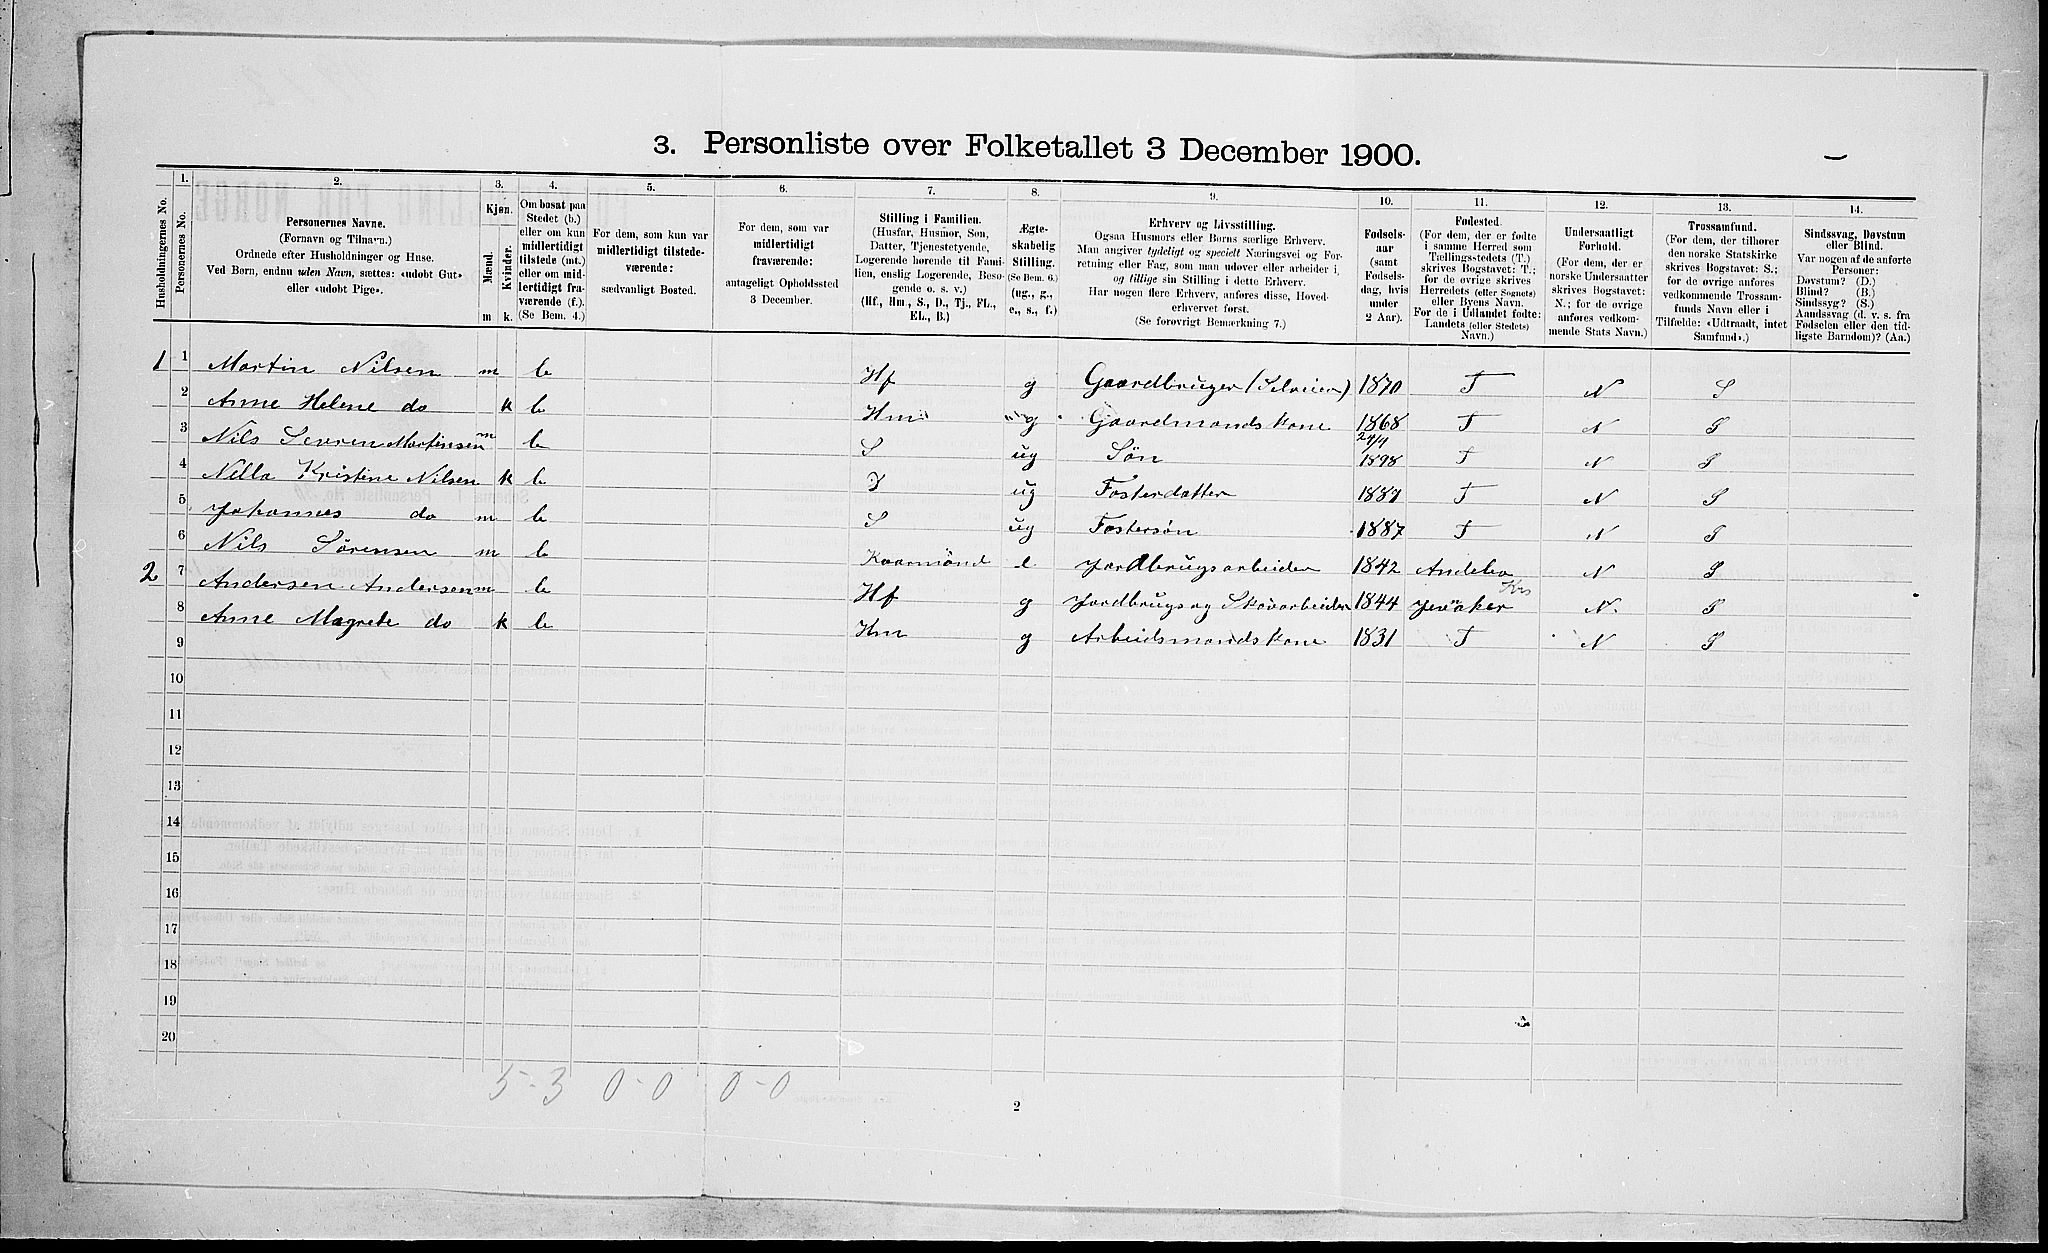 3. Personliste over Folketallet 3 December 1900.
Husholdningernes No.
1.
Personernes No.
2.
Personernes Navne.
(Fornavn og Tilnavn.)
Ordnede efter Husholdninger og Huse.
Ved Børn, endnu uden Navn, sættes: «udobt Gut»
eller «udobt Pige».
3.
Kjøn.
Mænd.
Kvinder.
m k.
4.
Om bosat paa
Stedet (b.)
eller om kun
midlertidigt
tilstede (mt.)
eller om mid-
lertidigt fra-
værende (f.).
(Se Bem. 4.)
5.
For dem, som kun var
midlertidigt tilstede-
værende:
sædvanligt Bosted.
6.
For dem, som var
midlertidigt
fraværende:
antageligt Opholdssted
3 December.
7.
Stilling i Familien.
(Husfar, Husmor, Søn,
Datter, Tjenestetyende,
Logerende hørende til Fami-
lien, enslig Logerende, Besø-
gende o. s. v.)
(Hf., Hm., S., D., Tj., FL.,
EL., B.)
8.
Ægte-
skabelig
Stilling.
(Se Bem. 6.)
(ug., g.,
e., s., f.)
9.
Erhverv og Livsstilling.
Ogsaa Husmors eller Børns særlige Erhverv.
Man angiver tydeligt og specielt Næringsvei og For-
retning eller Fag, som man udøver eller arbeider i,
og tillige sin Stilling i dette Erhverv.
Har nogen flere Erhverv, anføres disse, Hoved-
erhvervet først.
(Se forøvrigt Bemærkning 7.)
10.
Fødsels-
aar
(samt
Fødsels-
dag, hvis
under
2 Aar).
11.
Fødested.
(For dem, der er fødte
i samme Herred som
Tællingsstedets (T.)
skrives Bogstavet: T.;
for de øvrige skrives
Herredets (eller Sognets)
eller Byens Navn.
For de i Udlandet fødte:
Landets (eller Stedets)
Navn.)
12.
Undersaatligt
Forhold.
(For dem, der er
norske Undersaatter
skrives Bogstavet:
N.; for de øvrige
anføres vedkom-
mende Stats Navn.)
13.
Trossamfund.
(For dem, der tilhører
den norske Statskirke
skrives Bogstavet: S.;
for de øvrige anføres
vedkommende Trossam-
funds Navn eller i
Tilfælde: «Udtraadt, intet
Samfund».)
14.
Sindssvag, Døvstum
eller Blind.
Var nogen af de anførte
Personer:
Døvstum? (D.)
Blind? (B.)
Sindssyg? (S.)
Aandssvag (d. v. s. fra
Fødselen eller den tid-
ligste Barndom)? (Aa.)
1 1 Martin Nilsen m b Hf g Gaardbruger (Selveier) 1870 T N S
2 Anne Helene do k b Hm g Gaardmandskone 1868 T N S
3 Nils Severen Martinsen m b S ug Søn 1898 T N S
4 Nilla Kristine Nilsen k b D ug Fosterdatter T N S
5 Johannes do m b S ug Fostersøn 1887 T N S
6 Nils Sørensen m b e Jordbrugsarbeider 1842 Andebo N S
2 7 Andersen Andersen m b Hf g Jordbrugs og Skovarbeider 1844 N. S
8 Anne Magrete do k b Hm g Arbeidsmandskone 1831 T N S
9
10
11
12
13
14
15
16
17
18
19
20
5-3 0-0 0-0
2